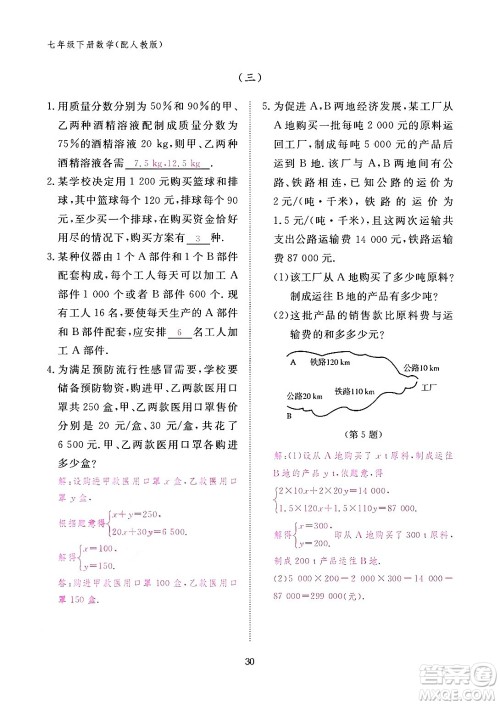 七年级下册数学(配人教版)
(三)
1. 用质量分数分别为 50%和 90%的甲、
乙两种酒精溶液配制成质量分数为
75%的酒精溶液 20 kg,则甲、乙两种
酒精溶液各需 7.5 kg,12.5 kg .
2. 某学校决定用 1 200 元购买篮球和排
球,其中篮球每个 120 元,排球每个
90 元,在两种球都购买且资金恰好
用尽的情况下,购买方案有 3 种.
3. 某种仪器由 1 个 A 部件和 1 个 B 部
件配套构成,每个工人每天可以加工 A
部件 1 000 个或者加工 B 部件 600 个.
现有工人 16 名,要使每天加工的 A,
B 两种部件配套,应安排 6 名工人
加工 A 部件.
4. 为满足预防流行性感冒需要,某学校
储备预防物资,已知甲、乙两款医用口
罩共 250 盒,甲、乙两款医用口罩的售
价分别是 20 元/盒、30 元/盒,共花了
6 500 元.甲、乙两款医用口罩各购进
多少盒?
解:设购进甲款医用口罩 x 盒,乙款医
用口罩 y 盒.
根据题意得{x+y=250,
20x+30y=6 500,
解得{x=100,
y=150.
答:购进甲款医用口罩 100 盒,乙款医用口
罩 150 盒.
5. 为促进 A,B 两地经济发展,某工厂从
A 地购买一批每吨 2 000 元的原料运
回工厂,制成每吨 5 000 元的产品后
后运到 B 地.该厂与 A,B 两地间有公
路、铁路相连,公路的运价为
1.5 元/(吨·千米),铁路的运价为
1 元/(吨·千米),这两次运输共
支出公路运输费 14 000 元,铁路运输费
87 000 元.
(1)该工厂从 A 地购买了多少吨原料?
制成运往 B 地的产品有多少吨?
(2)这批产品的销售款比原料费与运
输费的和多多少元?
A 铁路120 km 公路10 km
工厂
公路20 km 铁路110 km
B
(第 5 题)
解:(1)设从 A 地购买了 x t 原料,制成运往
B 地的产品 y t,依题意,得
{2×10x+1.5×20y=14 000,
解得{x=300,
制成运往 B 地的产品有 300 t.
(2)5 000×300-2 000×400-14 000-
87 000=299 000(元).
30